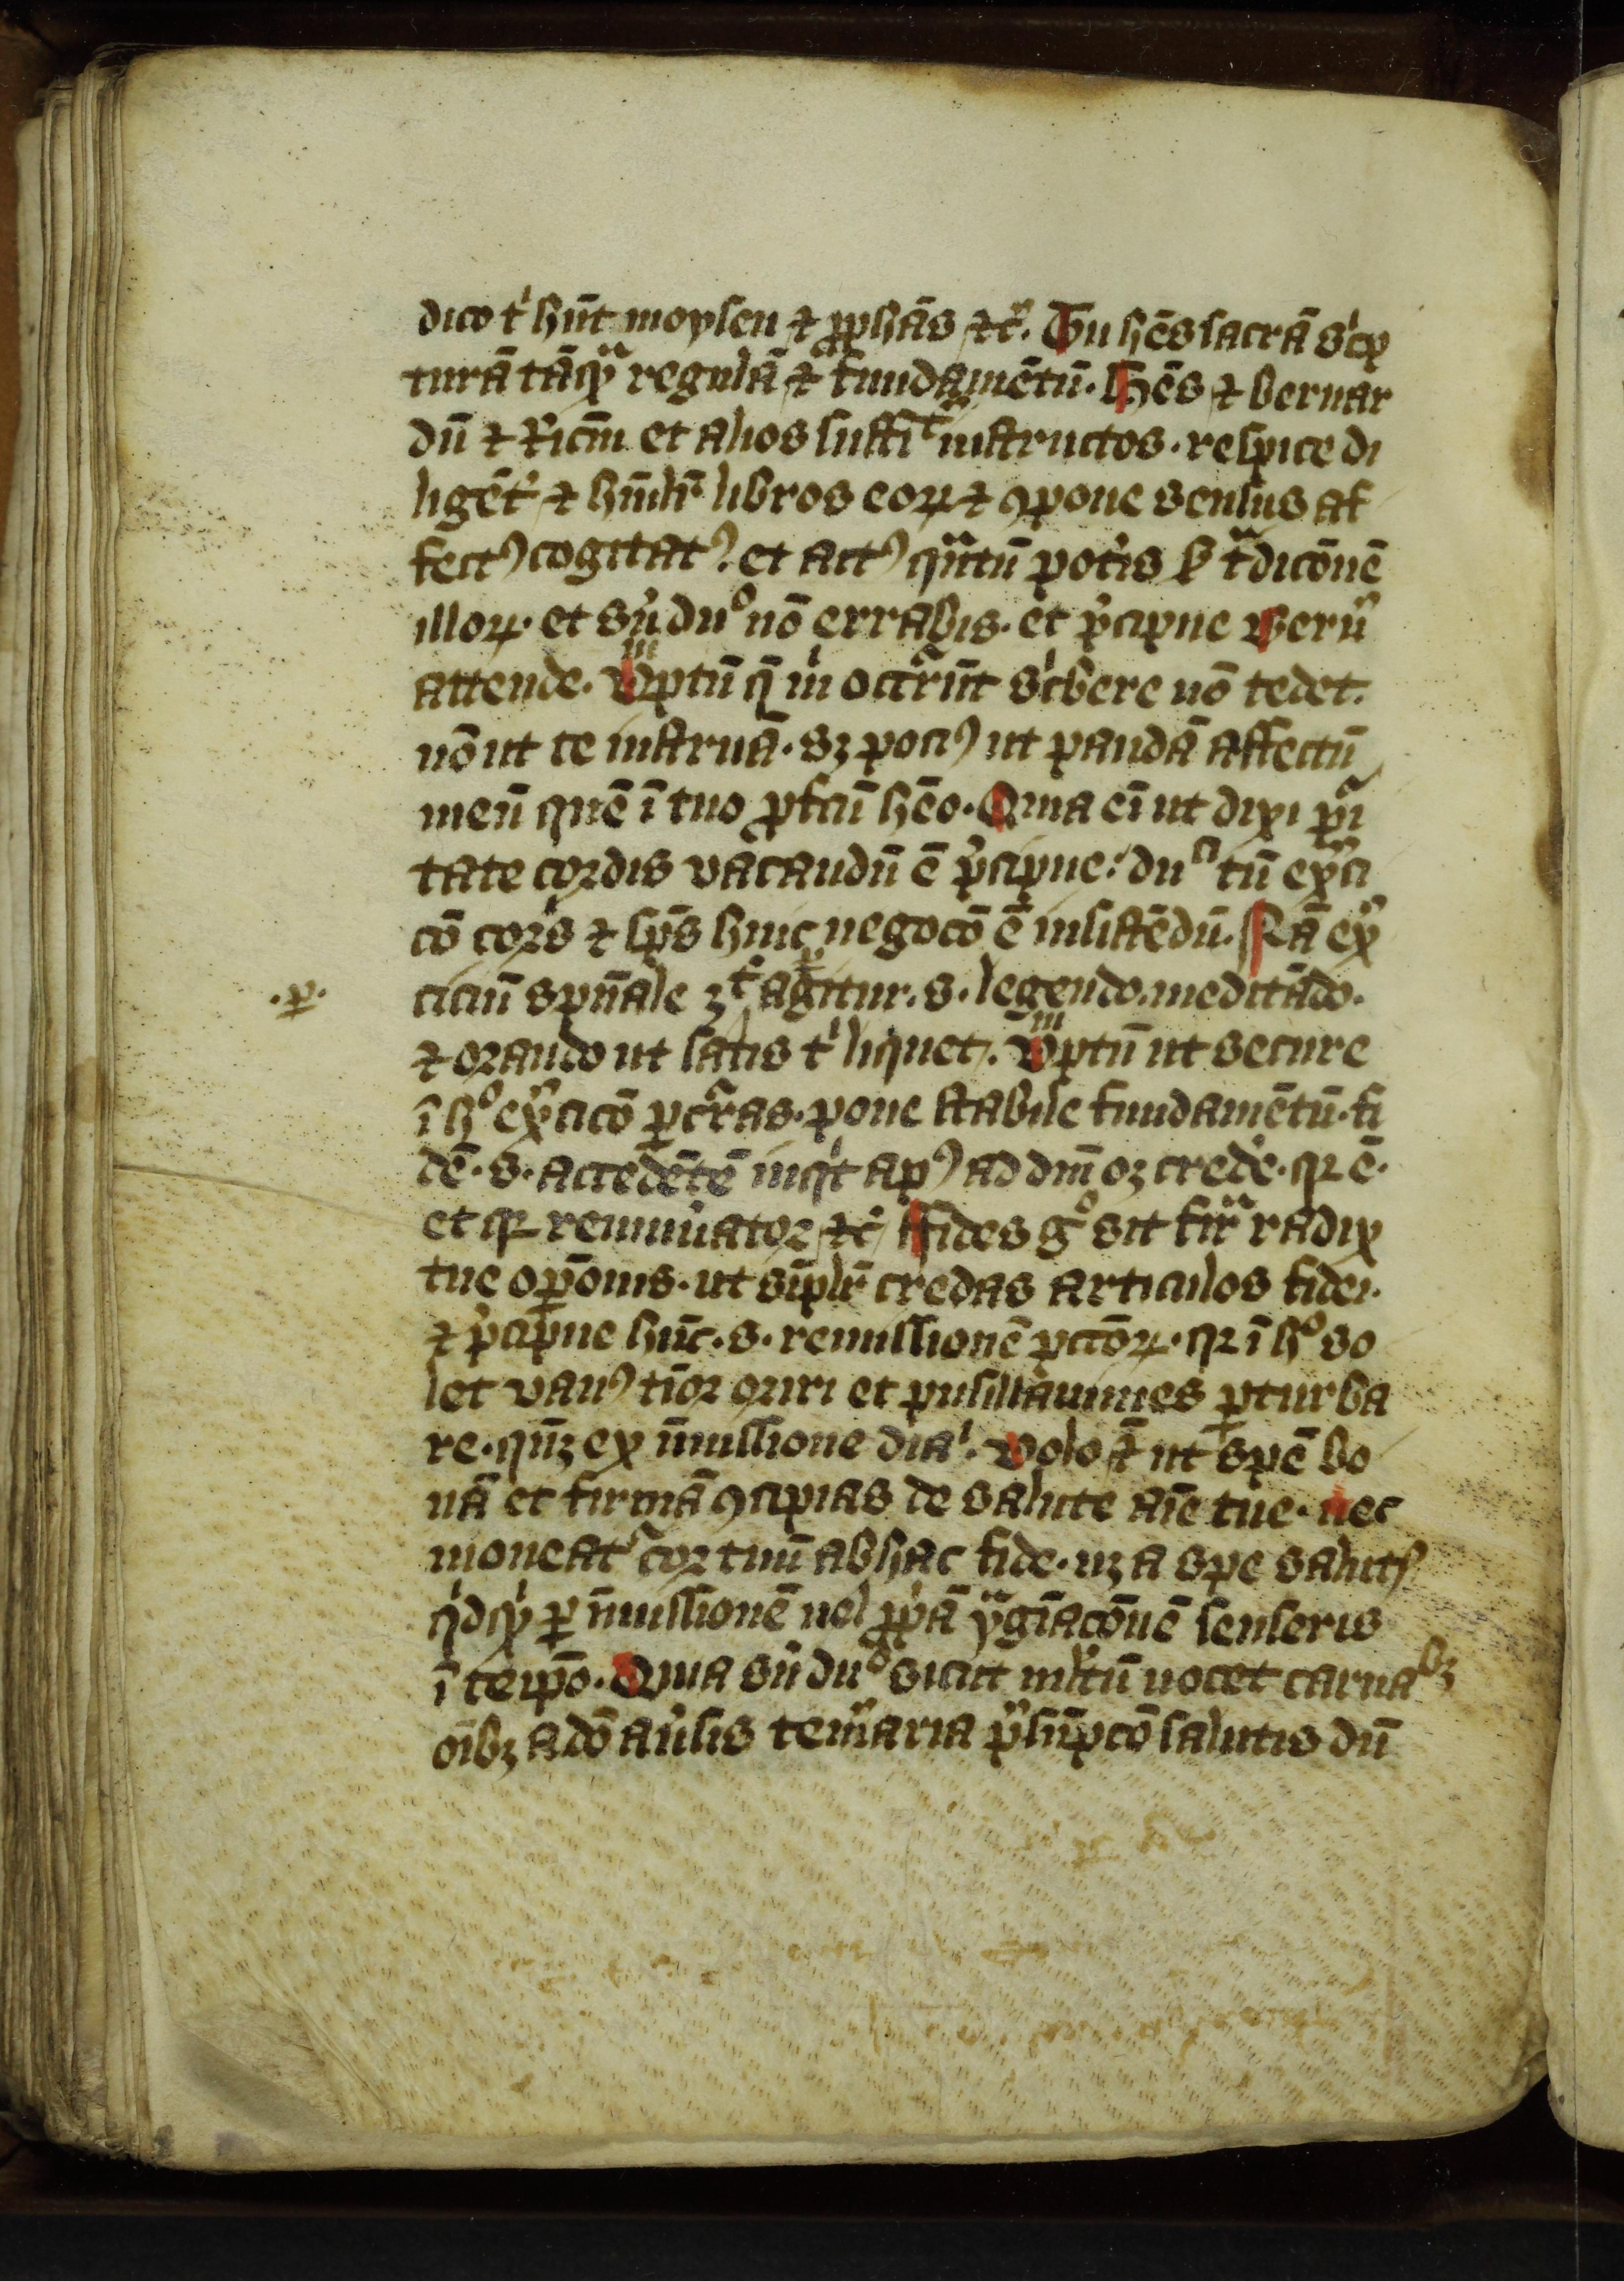 dico tⁱ hn̄t moysen ⁊ ꝓphās ⁊cͬ. Tu hēs sacrā sⁱcp
turā tāqᷓ regulā ⁊ fundamētū. Hēs ⁊ bernar
dū ⁊ Ricm̄ et alios suffiᵗ instructos. respice di
ligēt᷑ ⁊ hūilr̄ libros eoꝝ ⁊ ꝯpone sensus af
fectꝰ cogitatꝰ. et actꝰ qᷓntū potis ẜ tᷓdicōnē
illoꝝ. et sn̄ duᵒ nō errabis. et p᷑cipue verū
attende. Vᵐptū q̄ m̄ occᷓrūt sⁱbere nō tedet.
nō ut te instruā. sꝫ pociꝰ ut pandā affectū
meū quē ī tuo ꝓfcū hēo. Quia eī ut dixi pᷓi
tate cordis vacandū ē p᷑cipue. duᵐ tū ex᷑ci
cō corꝰs ⁊ sps̄ huic negocō ē insistēdū. Nā ex᷑
.ꝑ. ciciū spūale agitur. s. legendo. meditādo.
⁊ orando ut satis tⁱ liquet. Vᵐptū ut secure
ī hᵒ ex᷑cicō ꝑcᷓras. pone stabile fundamētū. fi
dē. s. accedētē inqⁱt apꝰ ad dm̄ oꝫ credē. qꝛ ē.
et qꝛ remun᷑ator ⁊cͬ Fides gᵒ sit firᷓ radix
tue oꝑōnis. ut sīplr̄ credas articulos fidei.
⁊ p᷑cipue hūc. s. remissionē pctōꝝ. qꝛ ī hᵒ so
let vanꝰ tīor oriri et pusillanimes ꝑturba
re. qn̄ꝫ ex īmissione diaⁱ. Volo t̄ ut spē bo
nā et firmā ꝯcipias de salute aīe tue. nec
moueat᷑ cor tuū ab hac fide. uꝫ a spe salutꝭ
qⁱdqⁱ ꝑ īmissionē uel ꝓpⁱā ymgīacōnē senseris
ī teip̄o. Quia sn̄ duᵒ sicut ml̄tū nocet carnaˡⁱbꝫ
oībꝫ a dō au᷑sis tem᷑aria p᷑sūpcō salutis dū